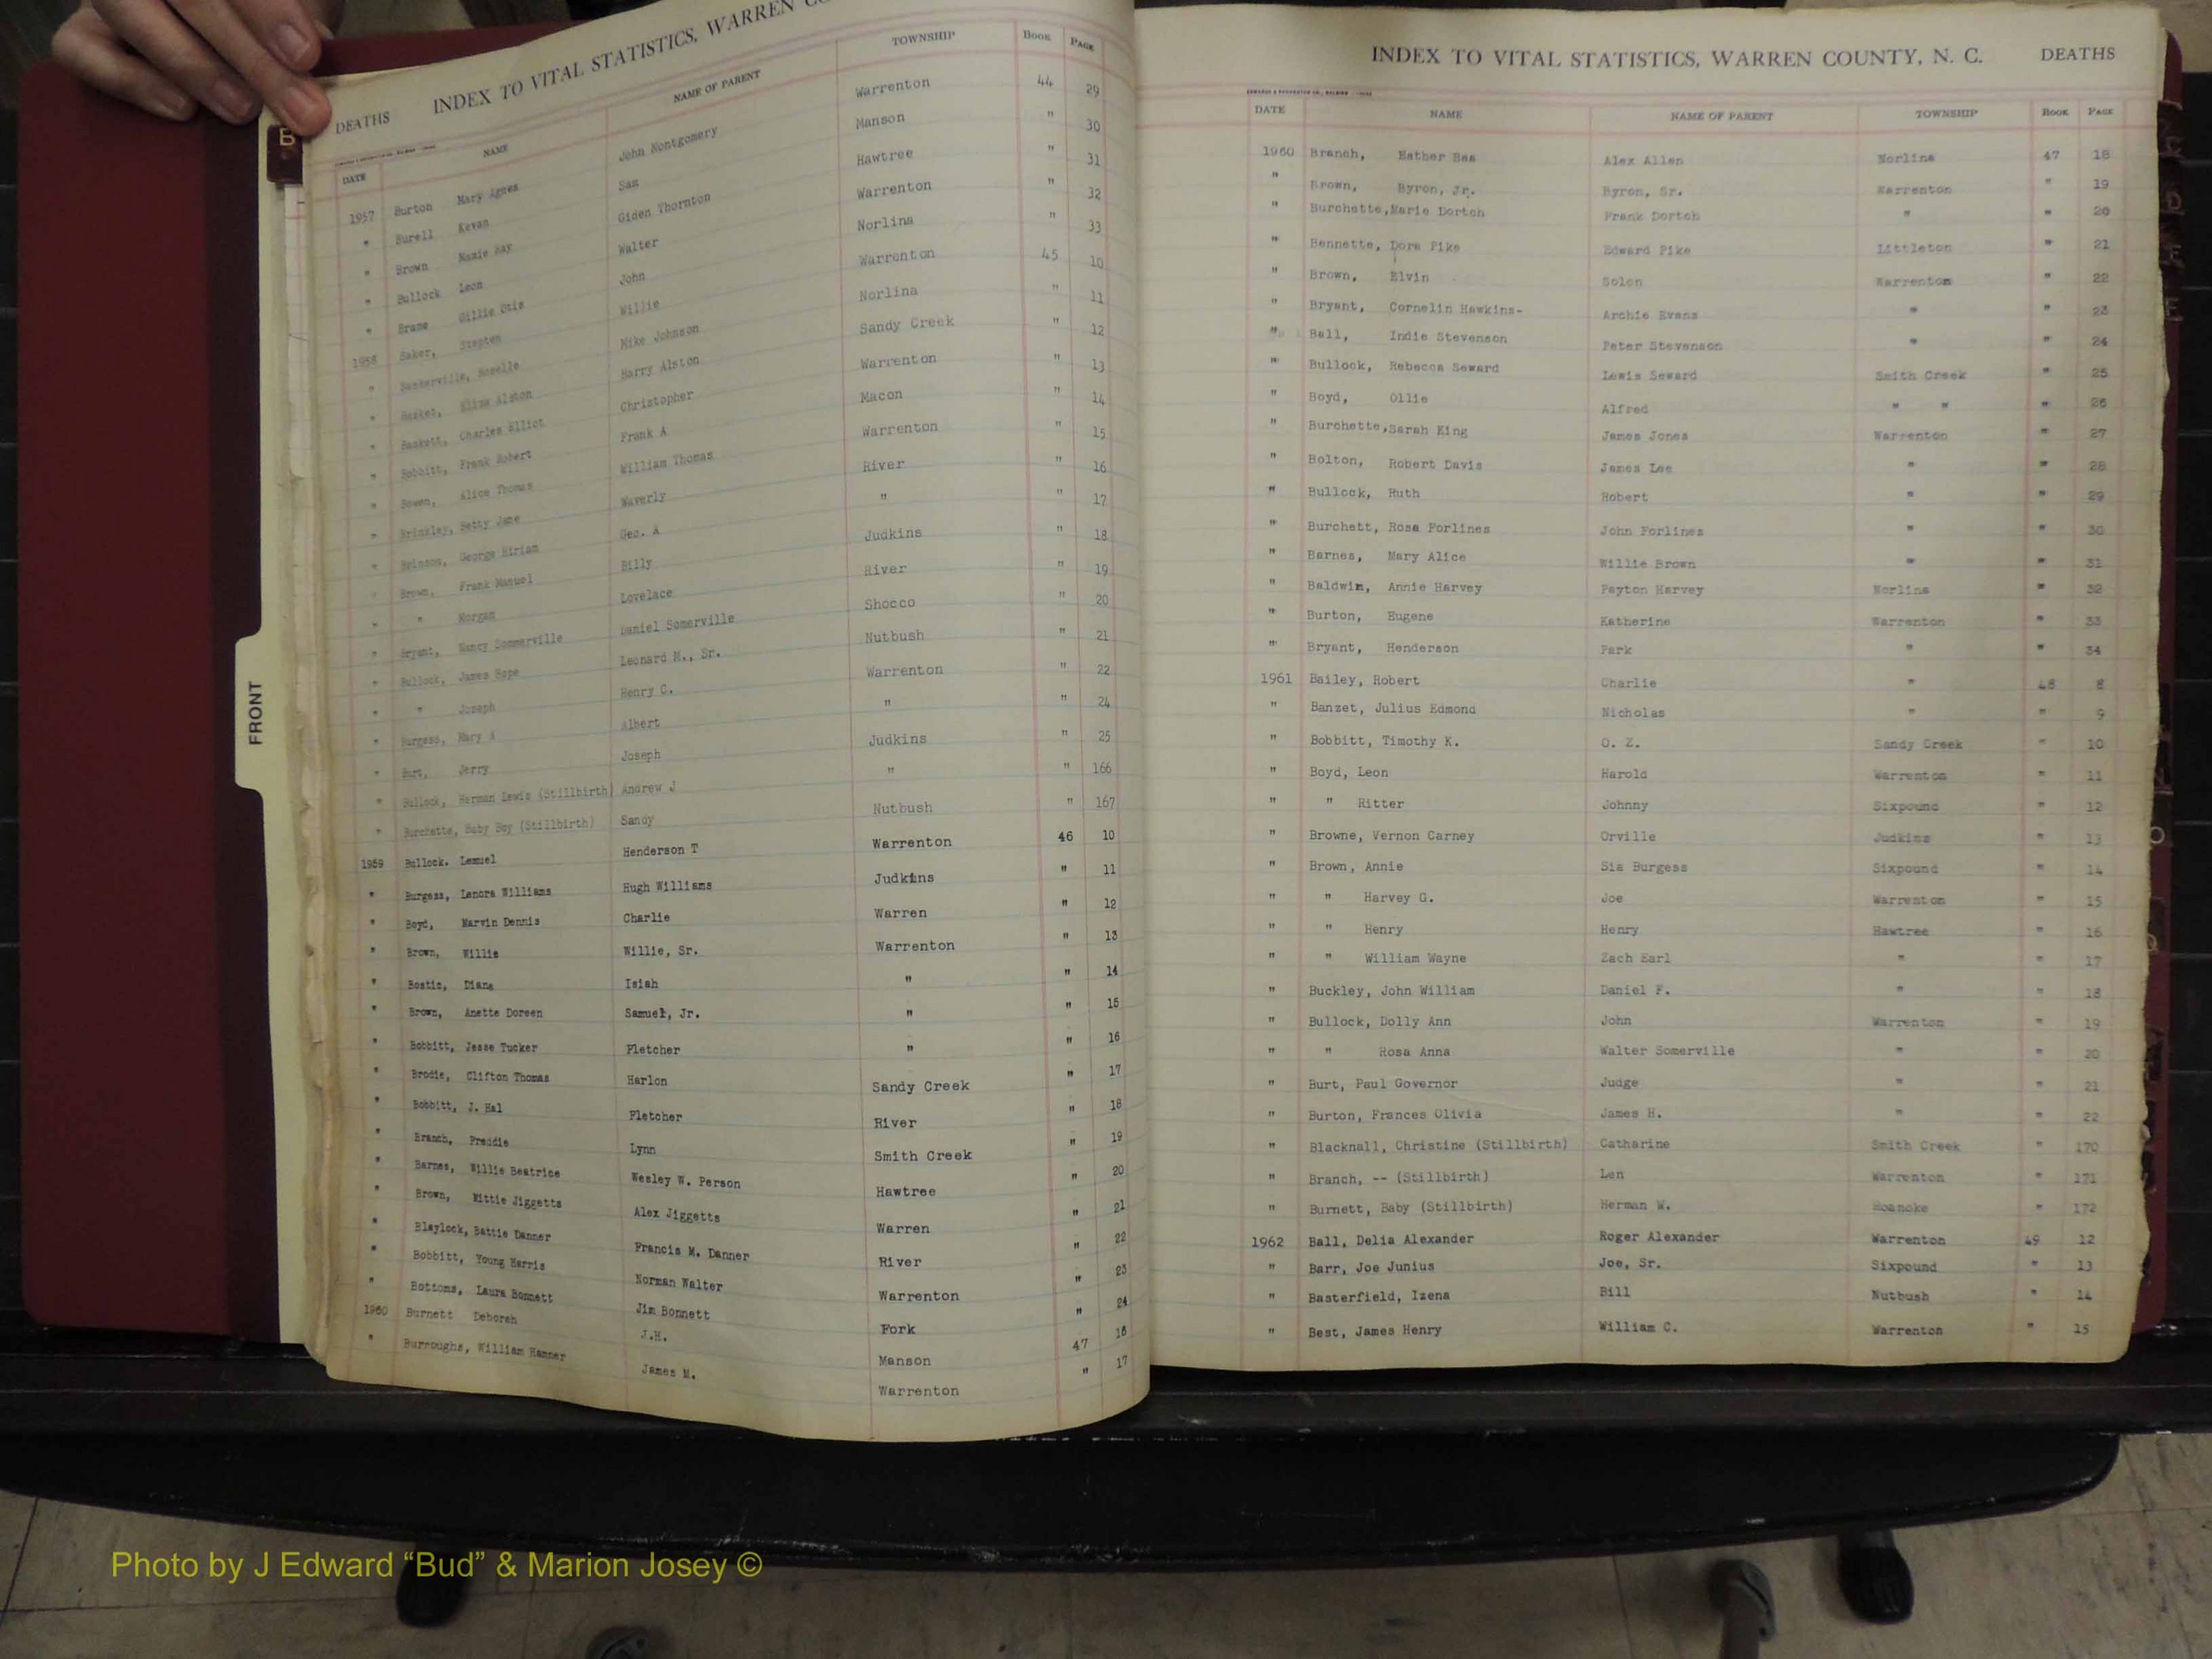 DEATHS INDEX TO VITAL STATISTICS, WARREN CO
DATE NAME NAME OF PARENT TOWNSHIP BOOK PAGE
1957 Burton Mary Agnes John Montgomery Warrenton 44 29
" Burell Kevan Sam Manson " 30
" Brown Namie Kay Giden Thornton Hawtree " 31
" Bullock Leon Walter Warrenton " 32
" Brame Gillie Otis John Norlina " 33
1958 Baker, Stepten Willie Warrenton 45 10
" Baskerville, Roselle Mike Johnson Norlina " 11
" Eliza Alston Harry Alston Sandy Creek " 12
" Baskett, Charles Elliot Christopher Warrenton " 13
" Bobbitt, Frank Robert Frank A Macon " 14
" Bowen, Alice Thomas William Thomas Warrenton " 15
" Brinkley, Betty Jane Waverly River " 16
" Brinson, George Hiriam Geo. A " " 17
" Brown, Frank Manuel Billy Judkins " 18
" " Morgan Lovelace River " 19
" Bryant, Nancy Sommerville Daniel Somerville Shocco " 20
" Bullock, James Hope Leonard M., Sr. Nutbush " 21
" " Joseph Henry C. Warrenton " 22
" Burgess, Mary A Albert " " 24
" Burt, Jerry Joseph Judkins " 25
" Bullock, Herman Lewis (Stillbirth) Andrew J " " 166
" Burchette, Baby Boy (Stillbirth) Sandy Nutbush " 167
1959 Bullock. Lemuel Henderson T Warrenton 46 10
" Burgess, Lenora Williams Hugh Williams Judkins " 11
" Boyd, Marvin Dennis Charlie Warren " 12
" Brown, Willie Willie, Sr. Warrenton " 13
" Bostic, Diana Isiah " " 14
" Brown, Anette Doreen Samuel, Jr. " " 15
" Bobbitt, Jesse Tucker Fletcher " " 16
" Brodie, Clifton Thomas Harlon Sandy Creek " 17
" Bobbitt, J. Hal Fletcher River " 18
" Branch, Freddie Lynn Smith Creek " 19
" Barnes, Willie Beatrice Wesley W. Person Hawtree " 20
" Brown, Mittie Jiggetts Alex Jiggetts Warren " 21
" Blaylock, Battie Danner Francis M. Danner River " 22
" Bobbitt, Young Harris Norman Walter Warrenton " 23
" Bottoms, Laura Bonnett Jim Bonnett Fork " 24
1960 Burnett Deborah J.H. Manson 47 16
" Burroughs, William Hanner James M. Warrenton " 17
B
FRONT
INDEX TO VITAL STATISTICS, WARREN COUNTY, N. C. DEATHS
DATE NAME NAME OF PARENT TOWNSHIP BOOK PAGE
1960 Branch, Esther Bea Alex Allen Norlina 47 18
" Brown, Byron, Jr. Byron, Sr. Warrenton " 19
" Burchette, Marie Dortch Frank Dortch " " 20
" Bennette, Dora Pike Edward Pike Littleton " 21
" Brown, Elvin Solon Warrenton " 22
" Bryant, Cornelin Hawkins- Archie Evans " " 23
" Ball, Indie Stevenson Peter Stevenson " " 24
" Bullock, Rebecca Seward Lewis Seward Smith Creek " 25
" Boyd, Ollie Alfred " " " 26
" Burchette, Sarah King James Jones Warrenton " 27
" Bolton, Robert Davis James Lee " " 28
" Bullock, Ruth Robert " " 29
" Burchett, Rosa Forlines John Forlines " " 30
" Barnes, Mary Alice Willie Brown " " 31
" Baldwin, Annie Harvey Payton Harvey Norlina " 32
" Burton, Eugene Katherine Warrenton " 33
" Bryant, Henderson Park " " 34
1961 Bailey, Robert Charlie " 48 8
" Banzet, Julius Edmond Nicholas " " 9
" Bobbitt, Timothy K. O. Z. Sandy Creek " 10
" Boyd, Leon Harold Warrenton " 11
" " Ritter Johnny Sixpound " 12
" Browne, Vernon Carney Orville Judkins " 13
" Brown, Annie Sia Burgess Sixpound " 14
" " Harvey G. Joe Warrenton " 15
" " Henry Henry Hawtree " 16
" " William Wayne Zach Earl " " 17
" Buckley, John William Daniel F. " " 18
" Bullock, Dolly Ann John Warrenton " 19
" " Rosa Anna Walter Somerville " " 20
" Burt, Paul Governor Judge " " 21
" Burton, Frances Olivia James H. " " 22
" Blacknall, Christine (Stillbirth) Catharine Smith Creek " 170
" Branch, -- (Stillbirth) Len Warrenton " 171
" Burnett, Baby (Stillbirth) Herman W. Roanoke " 172
1962 Ball, Delia Alexander Roger Alexander Warrenton 49 12
" Barr, Joe Junius Joe, Sr. Sixpound " 13
" Basterfield, Izena Bill Nutbush " 14
" Best, James Henry William C. Warrenton " 15
Photo by J Edward “Bud” & Marion Josey ©